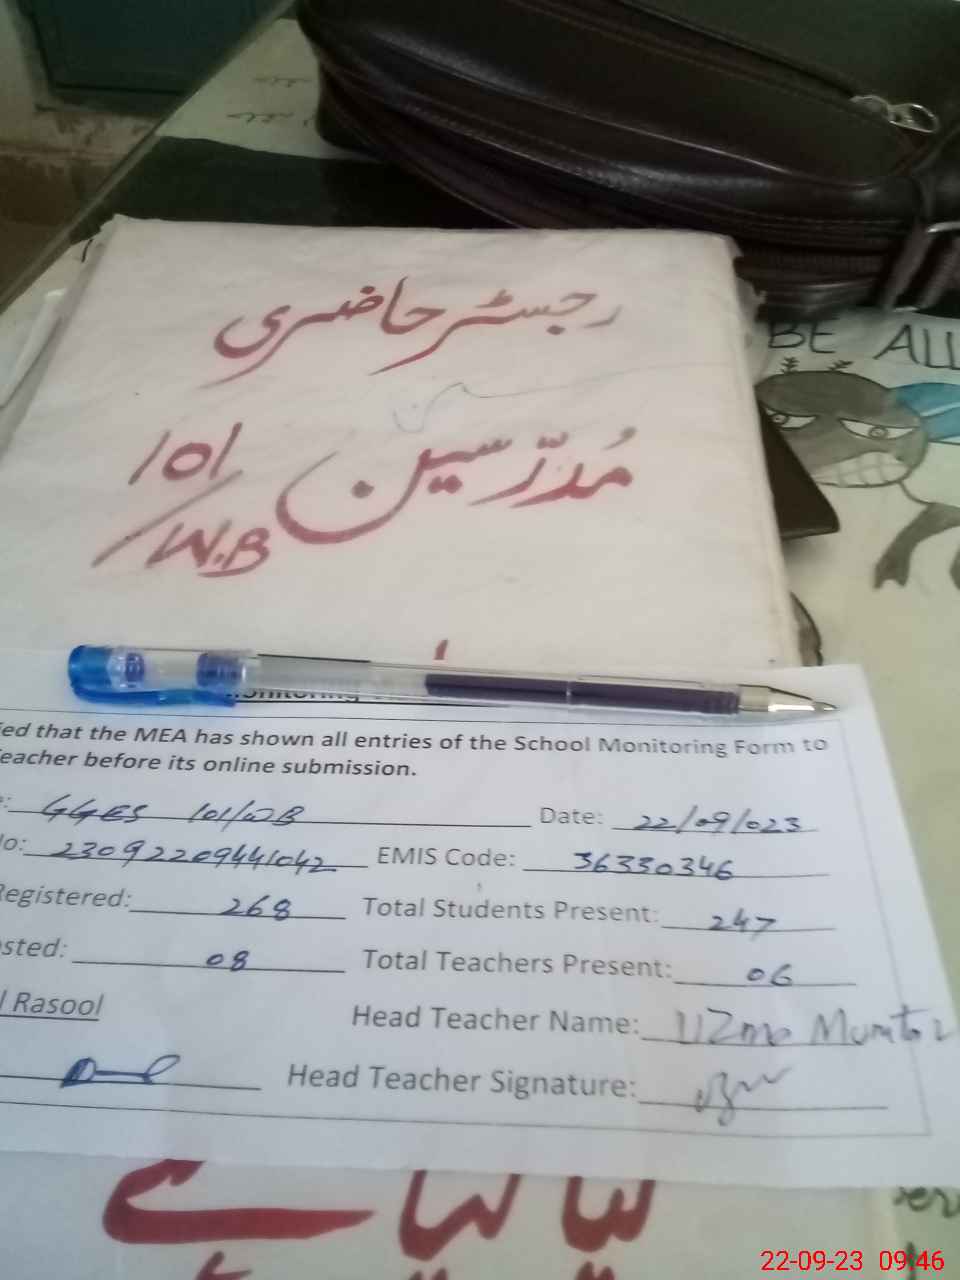 رجسٹر حاضری
مُدرّسین
101/W.B
BE ALL
Monitoring
ied that the MEA has shown all entries of the School Monitoring Form to
eacher before its online submission.
e: GGES 101/WB Date: 22/09/023
No: 23092209441042 EMIS Code: 36330346
Registered: 268 Total Students Present: 247
osted: 08 Total Teachers Present: 06
l Rasool Head Teacher Name: UZma Mumtaz
Head Teacher Signature:
22-09-23 09:46